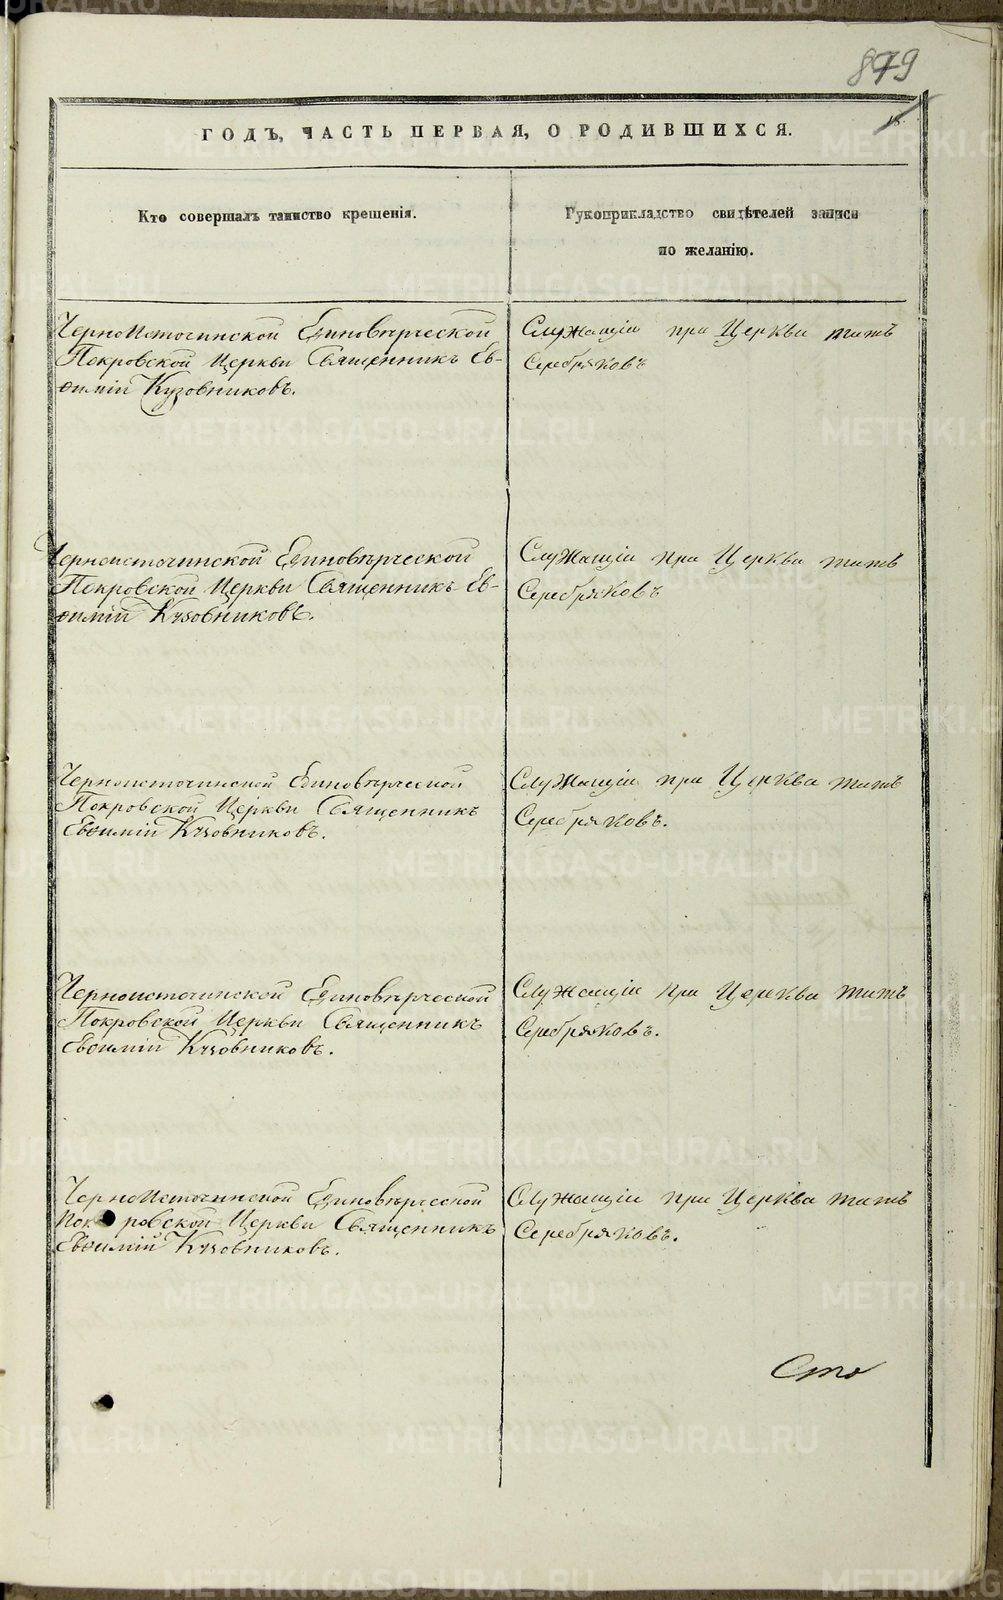 879
ГОДЪ, ЧАСТЬ ПЕРВАЯ, О РОДИВШИХСЯ.
Кто совершалъ таинство крещенія.
Рукоприкладство свидѣтелей записи
по желанію.
ЧерноИсточинской Единовѣрческой
Покровской Церкви Священникъ Ев-
ѳимій Кузовниковъ.
Служащіи при Церкви
Серебряковъ
Черноисточинской Единовѣрческой
Покровской Церкви Священникъ Ев-
ѳимій Кузовниковъ.
Служащіи при Церкви
Серебряковъ
Черноисточинской Единовѣрческой
Покровской Церкви Священникъ
Евѳимій Кузовниковъ.
Служащіи при Церкви
Серебряковъ.
Черноисточинской Единовѣрческой
Покровской Церкви Священникъ
Евѳимій Кузовниковъ.
Служащіи при Церкви
Серебряковъ.
ЧерноИсточинской Единовѣрческой
Покровской Церкви Священникъ
Евѳимій Кузовниковъ.
Служащіи при Церкви
Серебряковъ.
Сто
METRIKI.GASO-URAL.RU